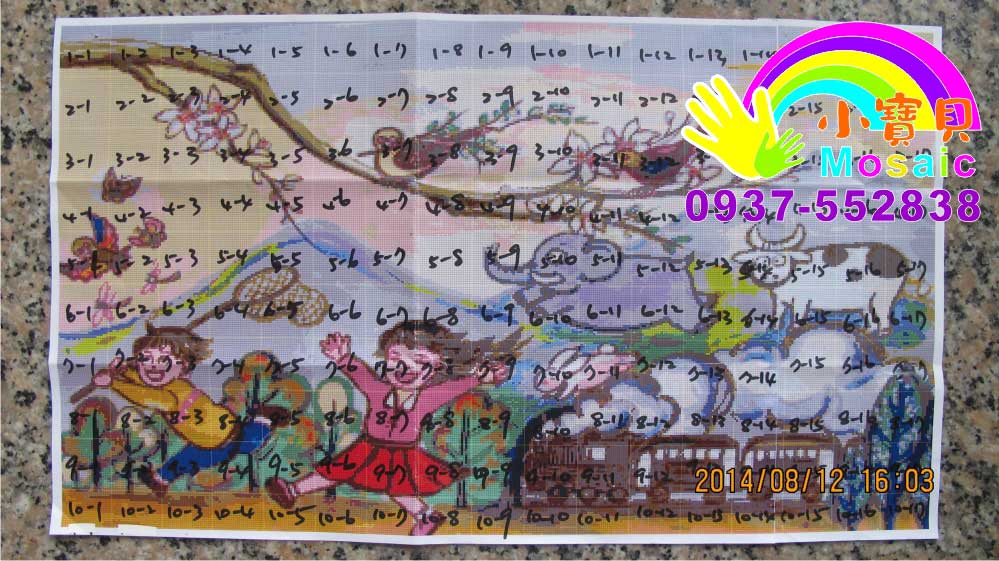 1-1 1-2 1-3 1-4 1-5 1-6 1-7 1-8 1-9 1-10 1-11 1-12 1-13 1-14
2-1 2-2 2-3 2-4 2-5 2-6 2-7 2-8 2-9 2-10 2-11 2-12 2-15
小寶貝
3-1 3-2 3-3 3-4 3-5 3-6 3-7 3-8 3-9 3-10 3-11 3-12
Mosaic
4-1 4-2 4-3 4-4 4-5 4-6 4-7 4-8 4-9 4-10 4-11 4-12
0937-552838
5-2 5-3 5-4 5-5 5-6 5-7 5-8 5-9 5-10 5-11 5-12 5-13 5-14 5-15 5-16 5-17
6-1 6-2 6-3 6-4 6-5 6-6 6-7 6-8 6-9 6-10 6-11 6-12 6-13 6-14 6-15 6-16 6-17
7-1 7-4 7-5 7-6 7-9 7-10 7-11 7-12 7-13 7-14 7-15 7-16
8-1 8-2 8-3 8-5 8-6 8-7 8-8 8-9 8-10 8-11 8-12 8-13 8-14 8-15 8-16 8-17
9-1 9-2 9-3 9-4 9-5 9-6 9-7 9-8 9-9 9-10 9-11 9-12
2014/08/12 16:03
10-1 10-2 10-3 10-4 10-5 10-6 10-7 10-8 10-9 10-10 10-11 10-12 10-13 10-14 10-15 10-16 10-17